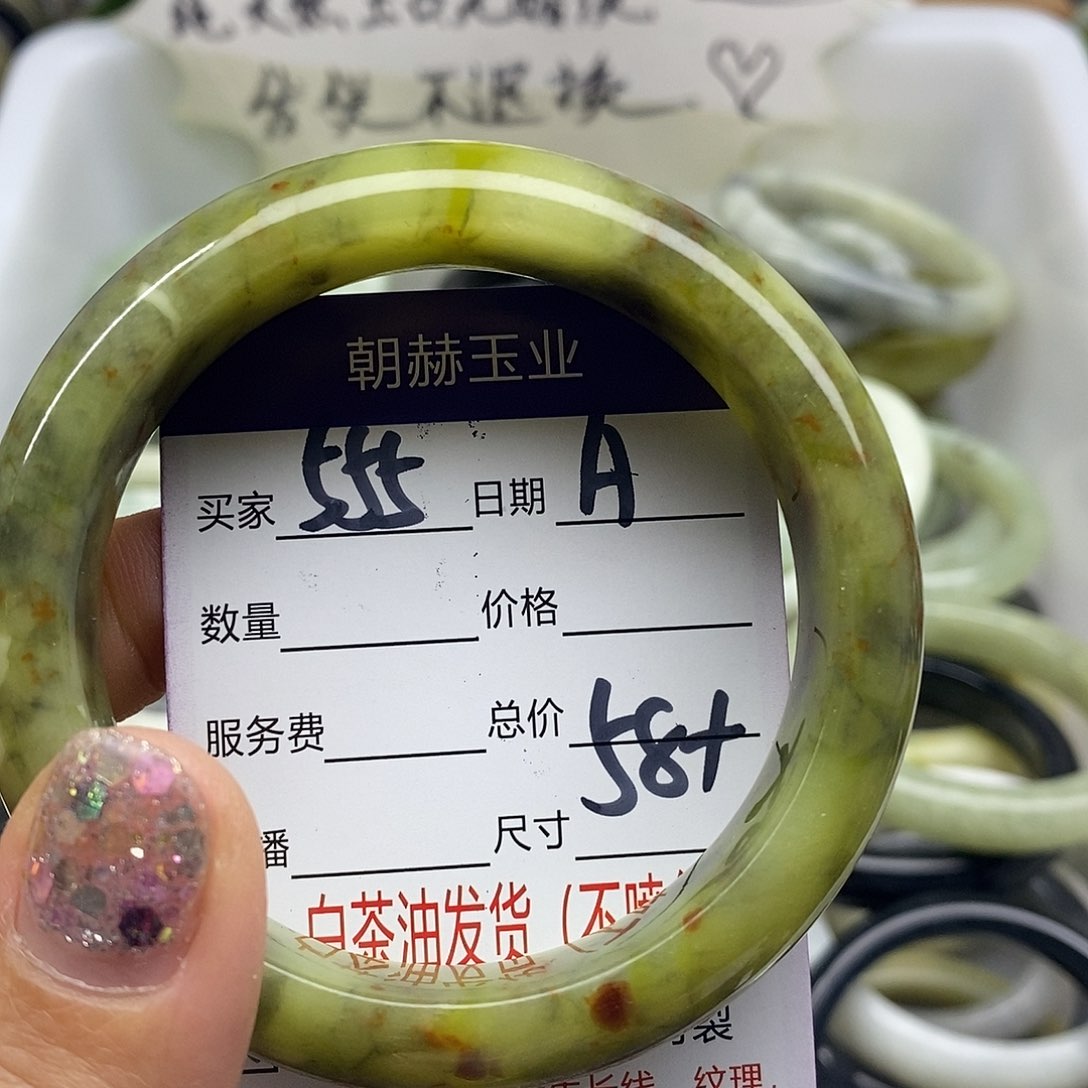 售出不退换
朝赫玉业
买家 555 日期 A
数量 价格
服务费 总价 58+
播 尺寸
白茶油发货（不喷
制
长线、纹理,